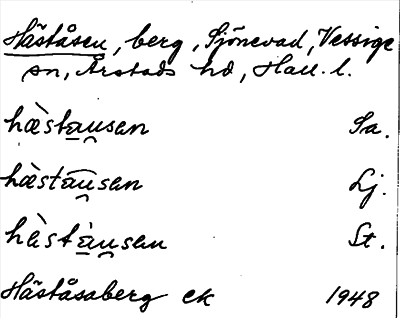 Häståsen, berg, Sjönevad, Vessige
sn, Årstads hd, Hall. l.
hæ̀sta̱u̯san Sa.
hæ̀sta̅u̯san Lj.
hà̈stà̱u̯san St.
Häståsaberg ek 1948